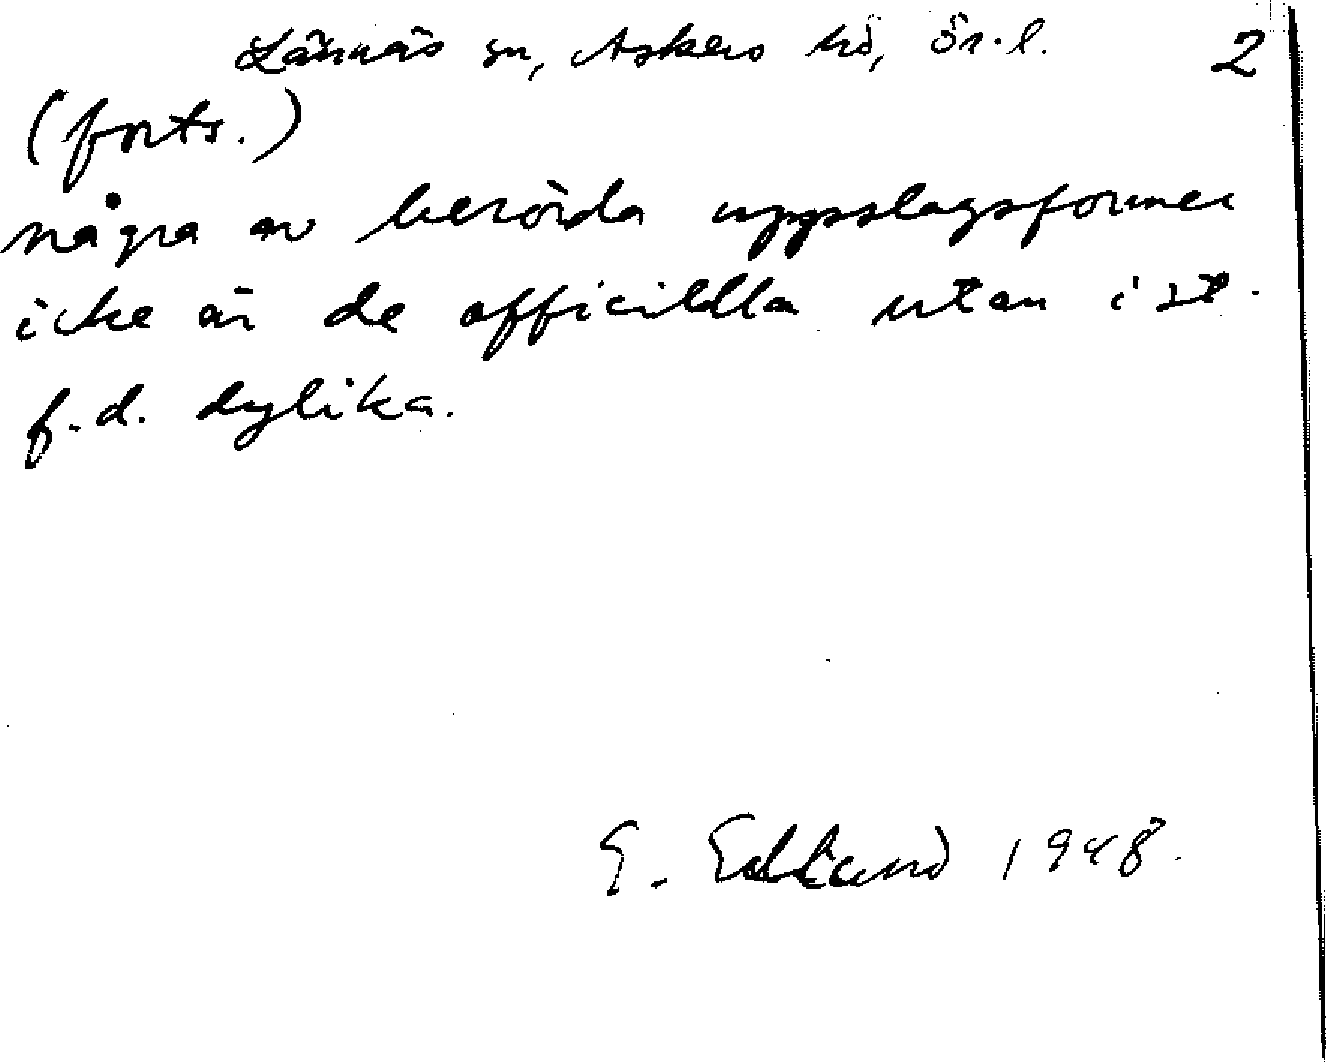 Lännäs sn, Askers hd, Ör. l. 2
(forts.)
några av berörda uppslagsformer
icke är de officiella utan i st.
f. d. dylika.
E. Edlund 1948.